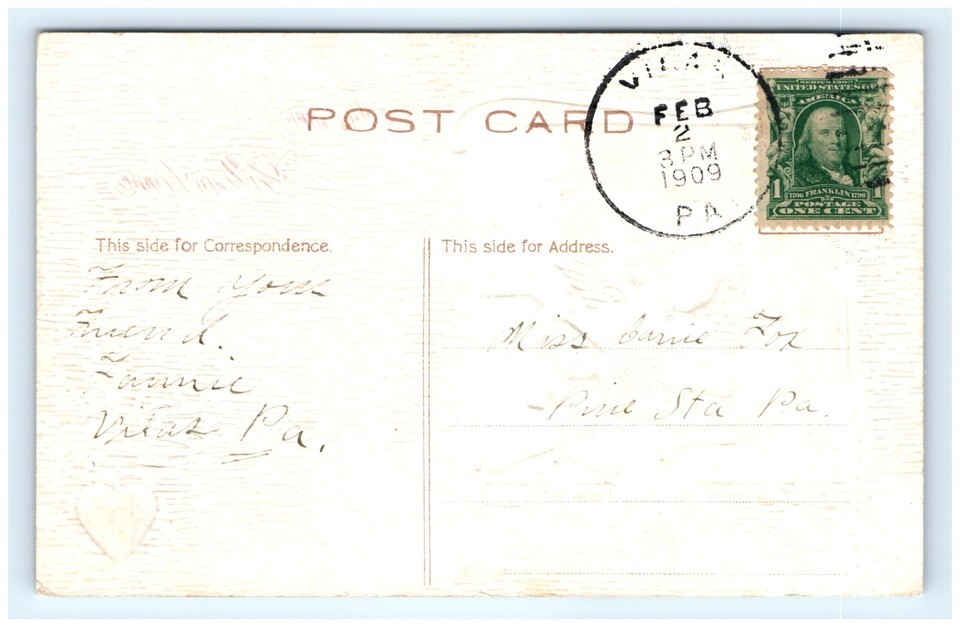 POST CARD
VILAS
FEB
2
3 PM
1909
PA
SERIES 1902
UNITED STATES OF
AMERICA
1 1
1706 FRANKLIN 1790
POSTAGE
ONE CENT
This side for Correspondence.
From your
Friend.
Fannie
Vilas Pa.
This side for Address.
Miss Carrie Fox
Pine Sta Pa.